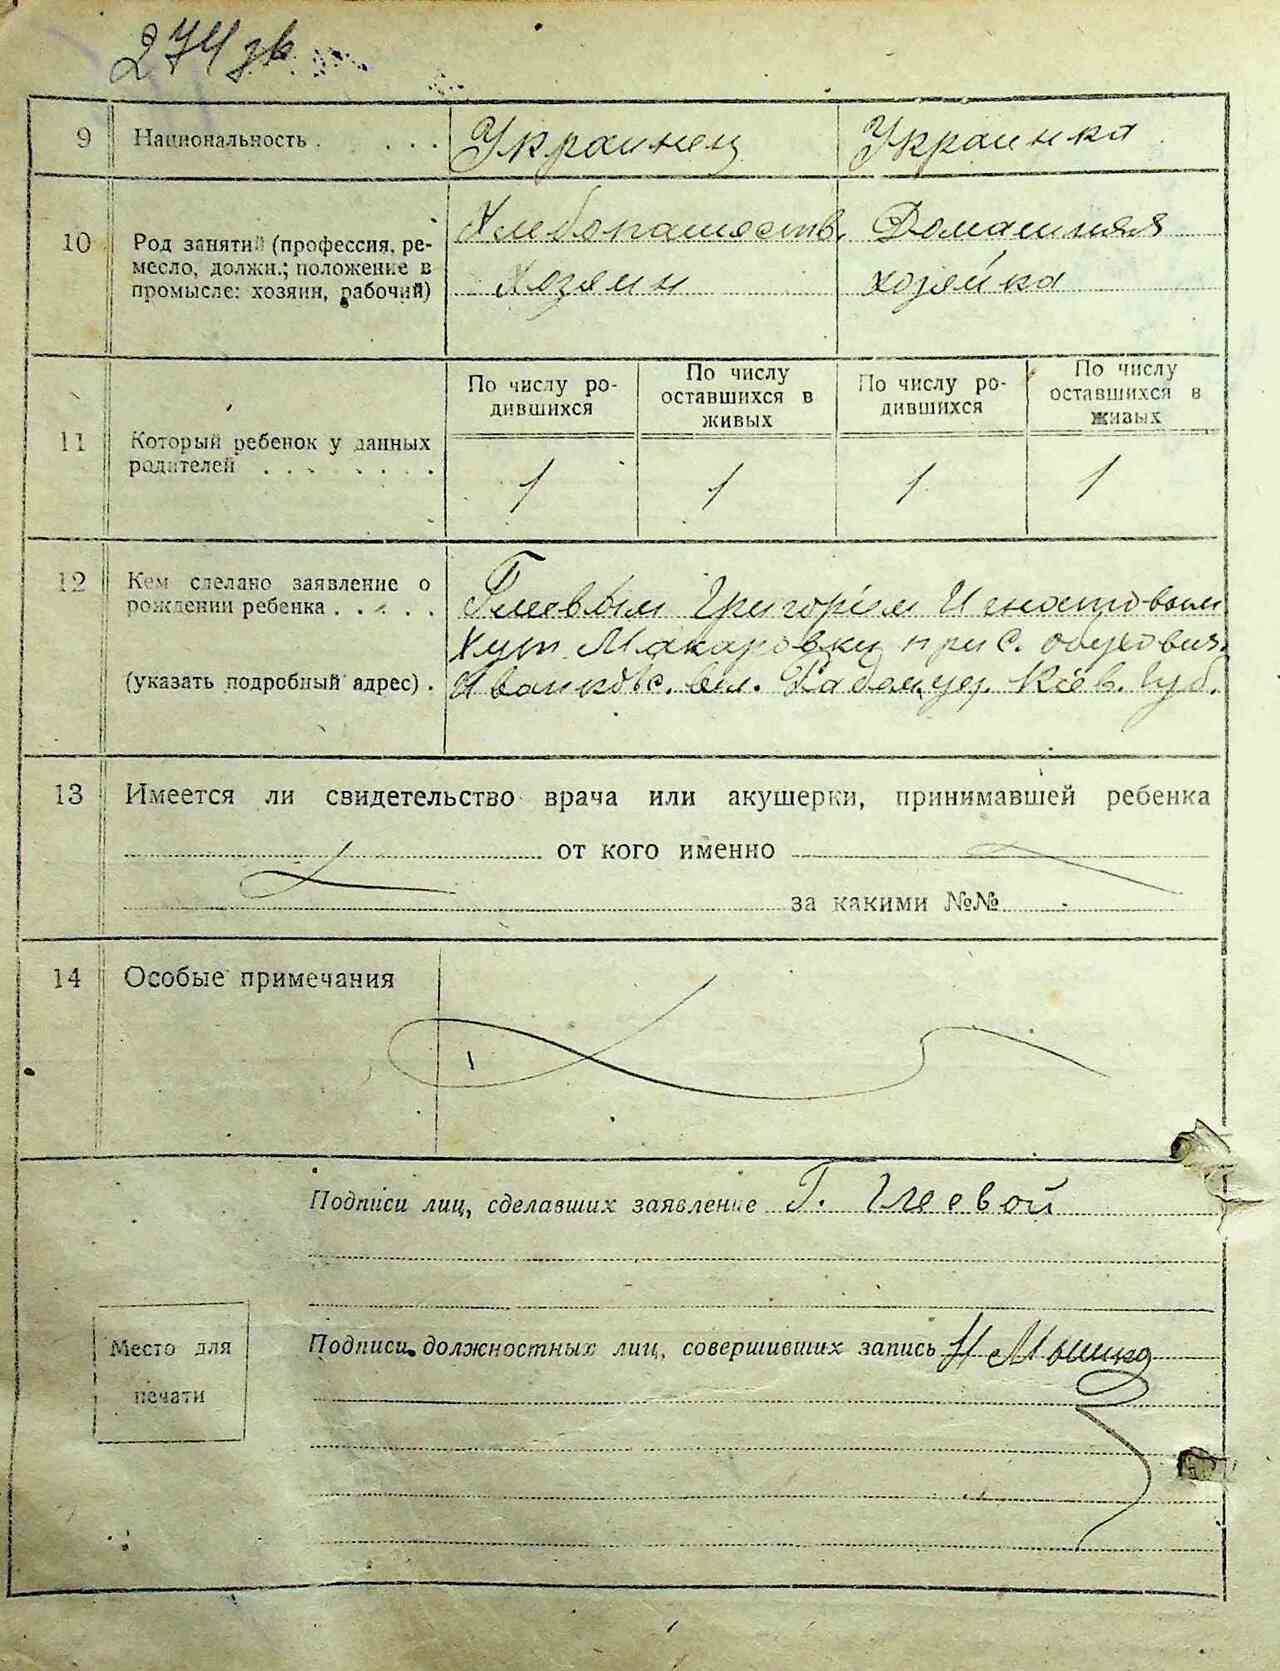 274 зв.
9 Национальность . . . . Украинец Украинка
10 Род занятий (профессия, ре- Хлебопашеств. Домашняя
месло, должн.; положение в
промысле: хозяин, рабочий) Хозяин хозяйка
По числу ро- По числу По числу ро- По числу
дившихся оставшихся в дившихся оставшихся в
живых живых
11 Который ребенок у данных
родителей . . . . . . 1 1 1 1
12 Кем сделано заявление о
рождении ребенка . . . . . Григорием Игнатовым
Хут. Макаровки при с. Обухович.
(указать подробный адрес) . Иванков. вол. Радом. уез. Киев. Губ.
13 Имеется ли свидетельство врача или акушерки, принимавшей ребенка
от кого именно
за какими №№
14 Особые примечания
Подписи лиц, сделавших заявление Г.
Место для Подписи должностных лиц, совершивших запись
печати